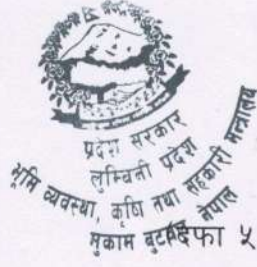 प्रदेश सरकार
लुम्बिनी प्रदेश
भूमि व्यवस्था, कृषि तथा सहकारी मन्त्रालय
नेपाल
मुकाम
दफा ५